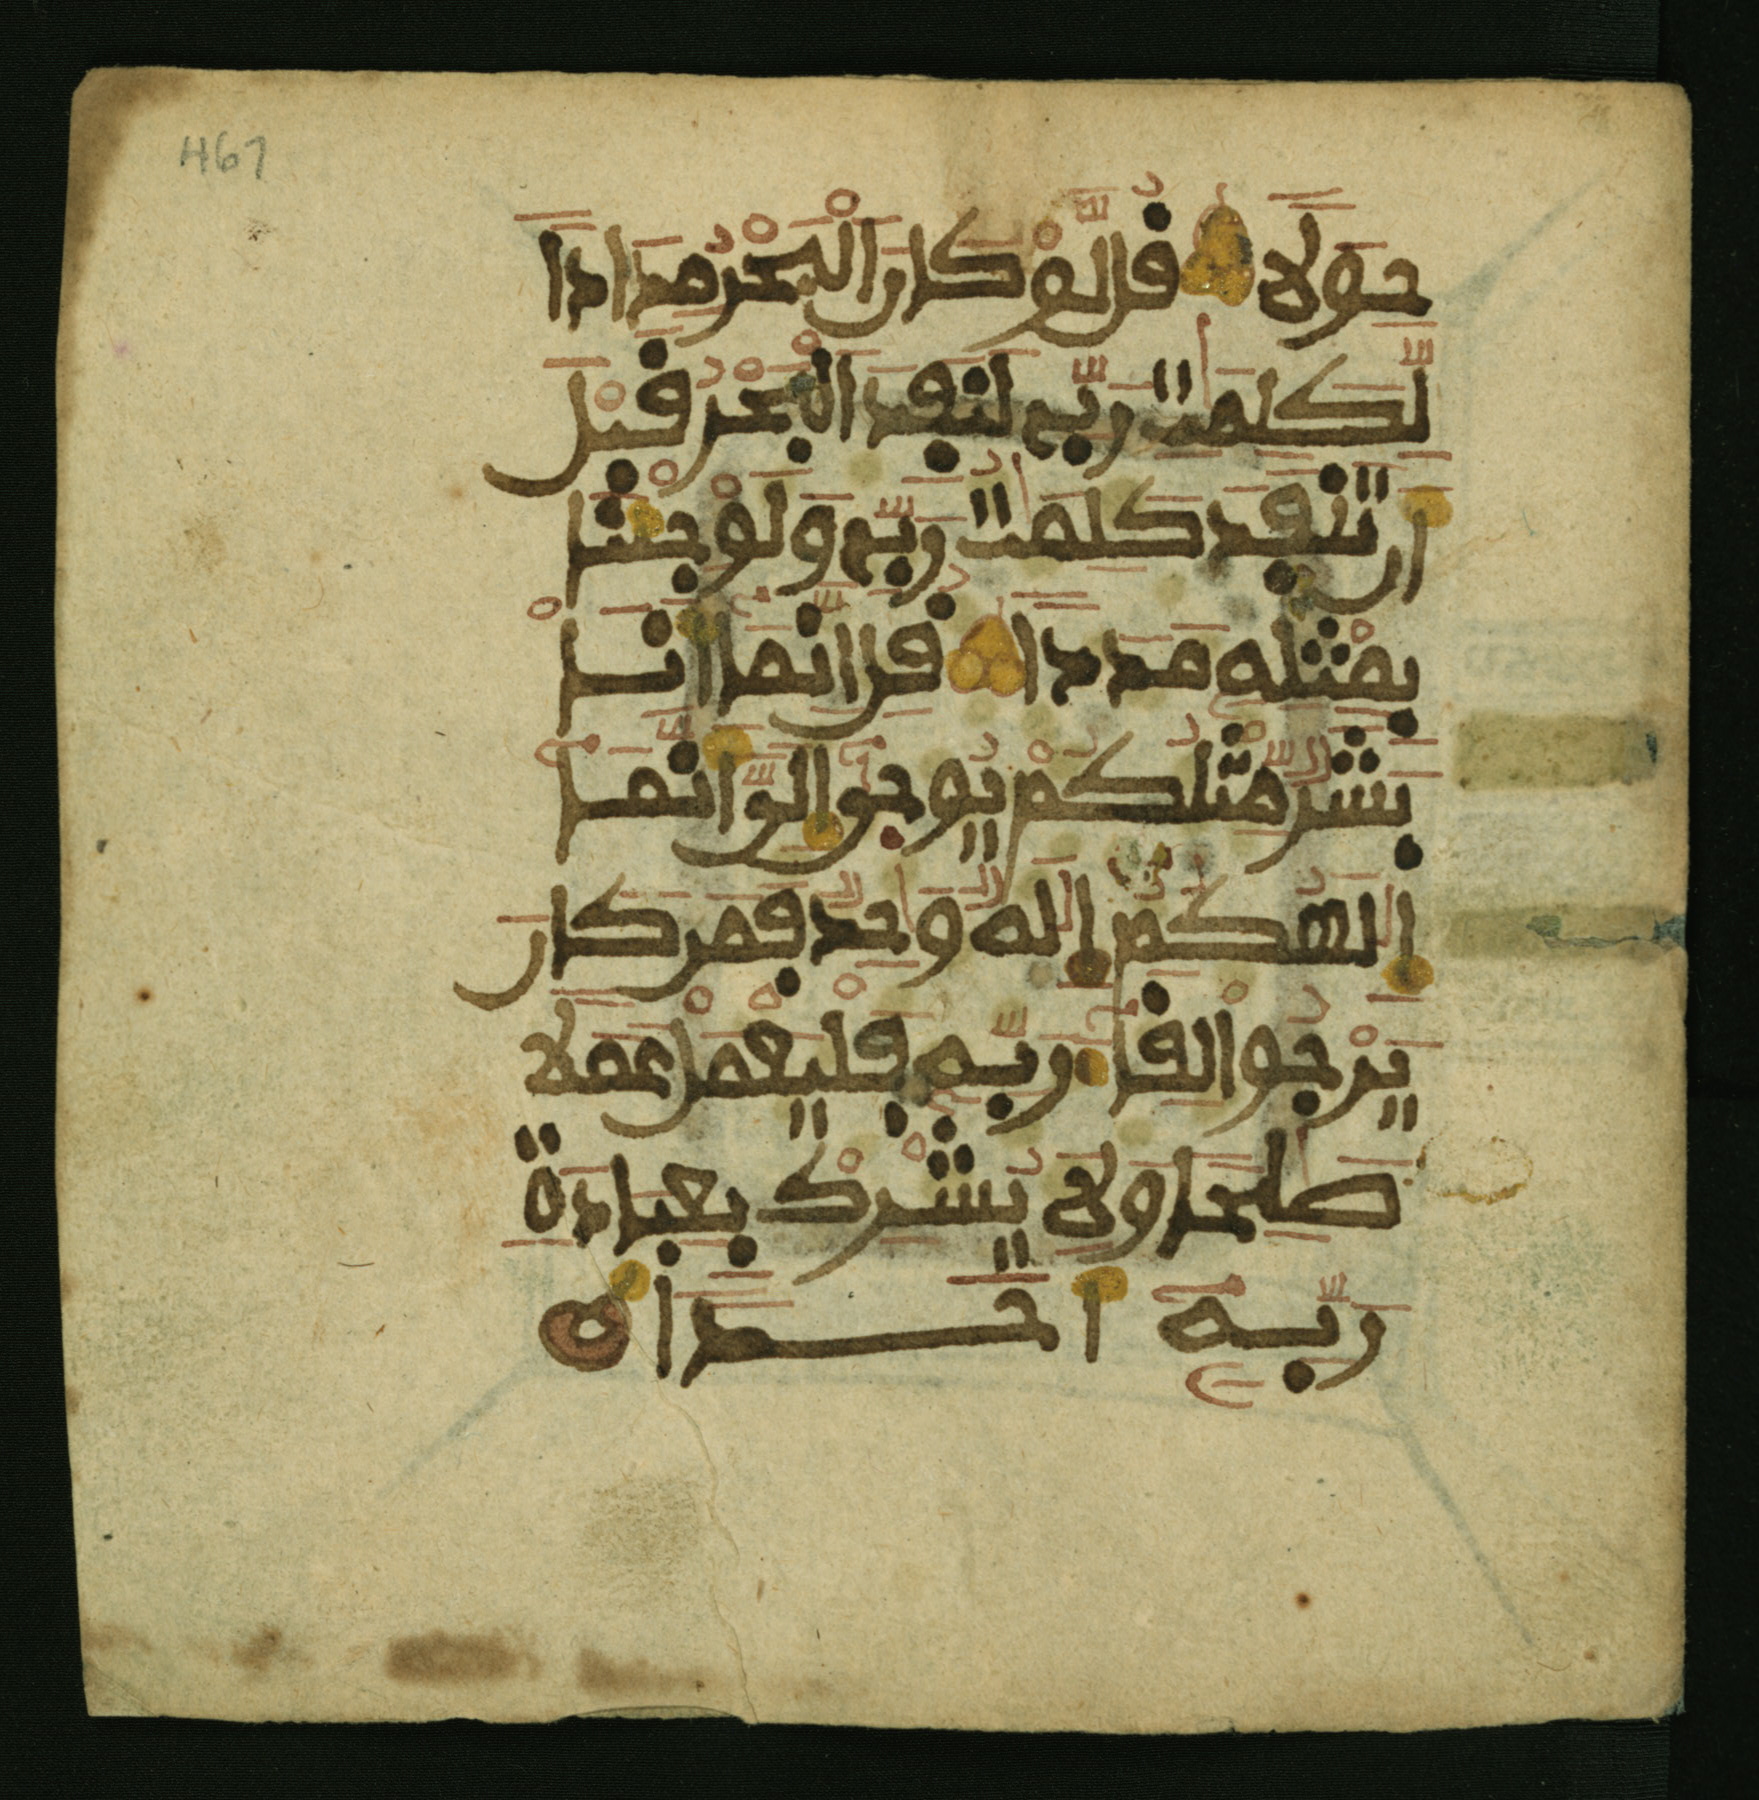 467
حِوَلًا قُل لَّوْ كَانَ اَلْبَحْرُ مِدَادًا
لِّكَلِمَٰتِ رَبِّے لَنَفِدَ اَلْبَحْرُ قَبْلَ
أَن تَنفَدَ كَلِمَٰتُ رَبِّے وَلَوْ جِئْنَا
بِمِثْلِهِ مَدَدًا قُلِ انَّمَا أَنَا
بَشَرٌ مِّثْلُكُمْ يُوحَىٰ إِلَىَّ أَنَّمَا
إِلَٰهُكُمُ إِلَٰهٌ وَٰحِدٌ فَمَن كَانَ
يَرْجُوا لِقَآءَ رَبِّهِ فَلْيَعْمَلْ عَمَلًا
صَٰلِحًا وَلَا يُشْرِكْ بِعِبَادَةِ
رَبِّهِ أَحَدًا